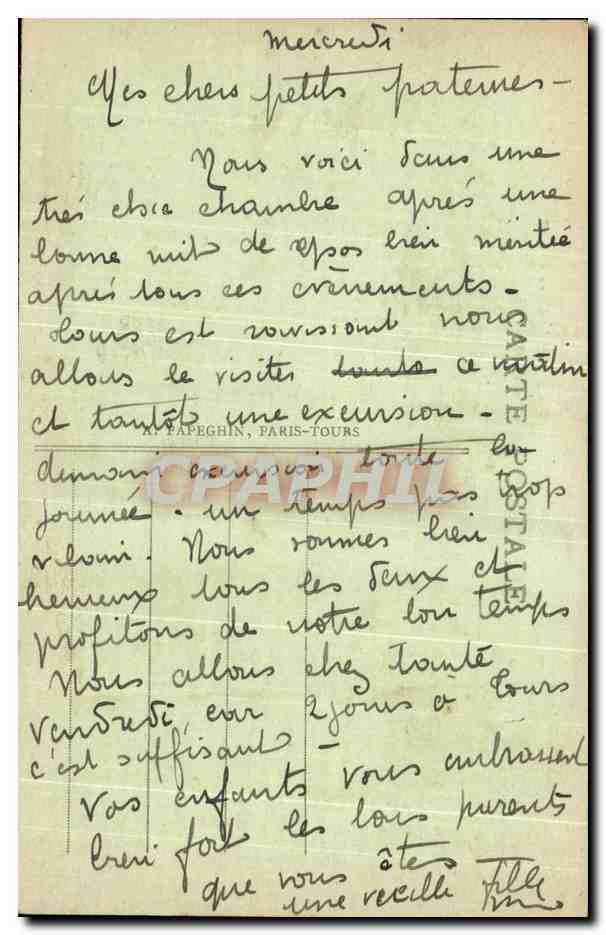 Mercredi
Mes chers petits paternes -
Nous voici dans une
très chic chambre après une
bonne nuit de repos bien méritée
après tous ces évènements -
Tours est ravissant nous
allons le visiter ce matin
et tantôt une excursion -
A. PAPEGHIN, PARIS-TOURS
CARTE POSTALE
demain excursion toute la
journée. un temps pas trop
vilain. Nous sommes bien
heureux tous les deux et
profitons de notre bon temps
Nous allons chez Tante
Vendredi, car 2 jours à Tours
c'est suffisant -
Vos enfants vous embrassent
bien fort les bons parents
que vous êtes
une vieille fille
CPAPHIL